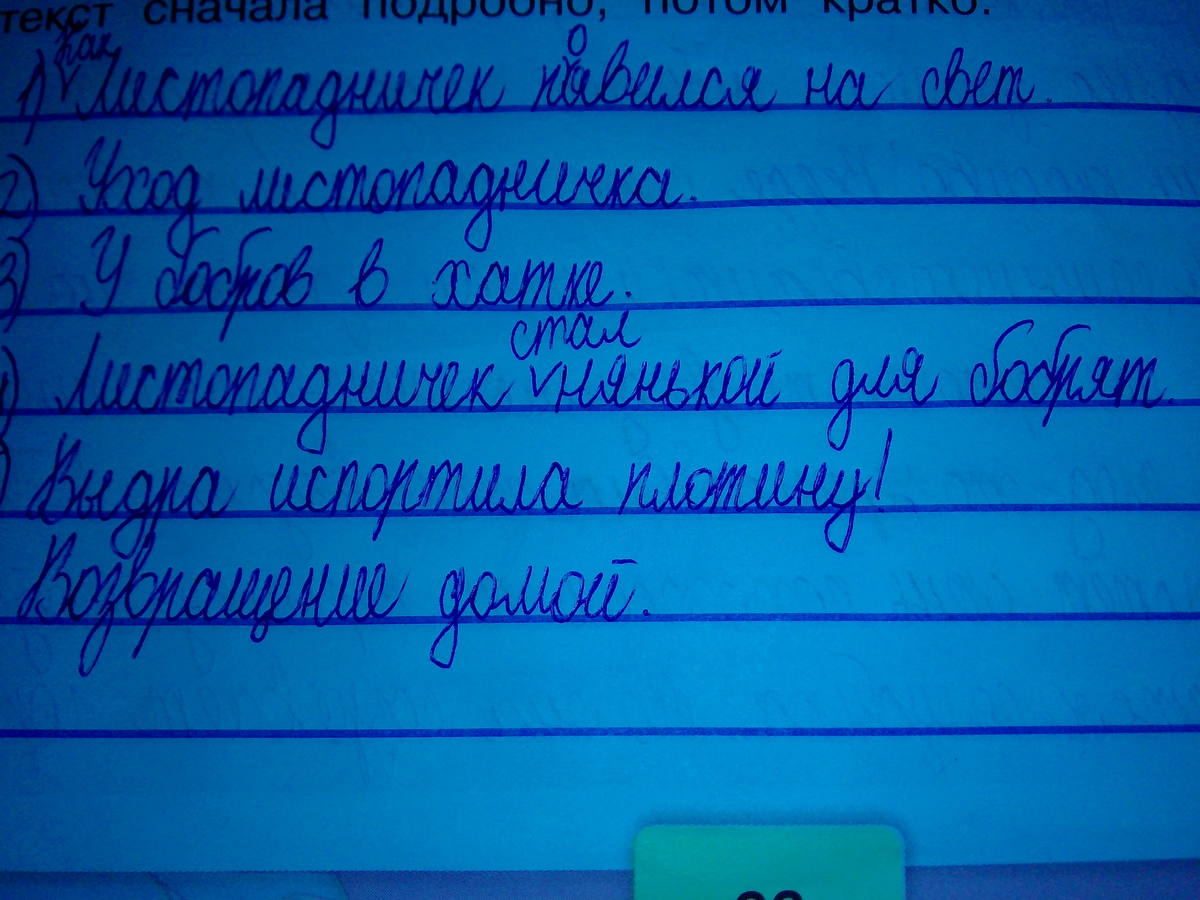 текст сначала подробно, потом кратко.
как
1) Листопадничек повелся на свет.
2) Уход листопадничка.
3) У бобров в хатке.
стал
) Листопадничек нянькой для бобрят.
) Выдра испортила плотину!
Возвращение домой.